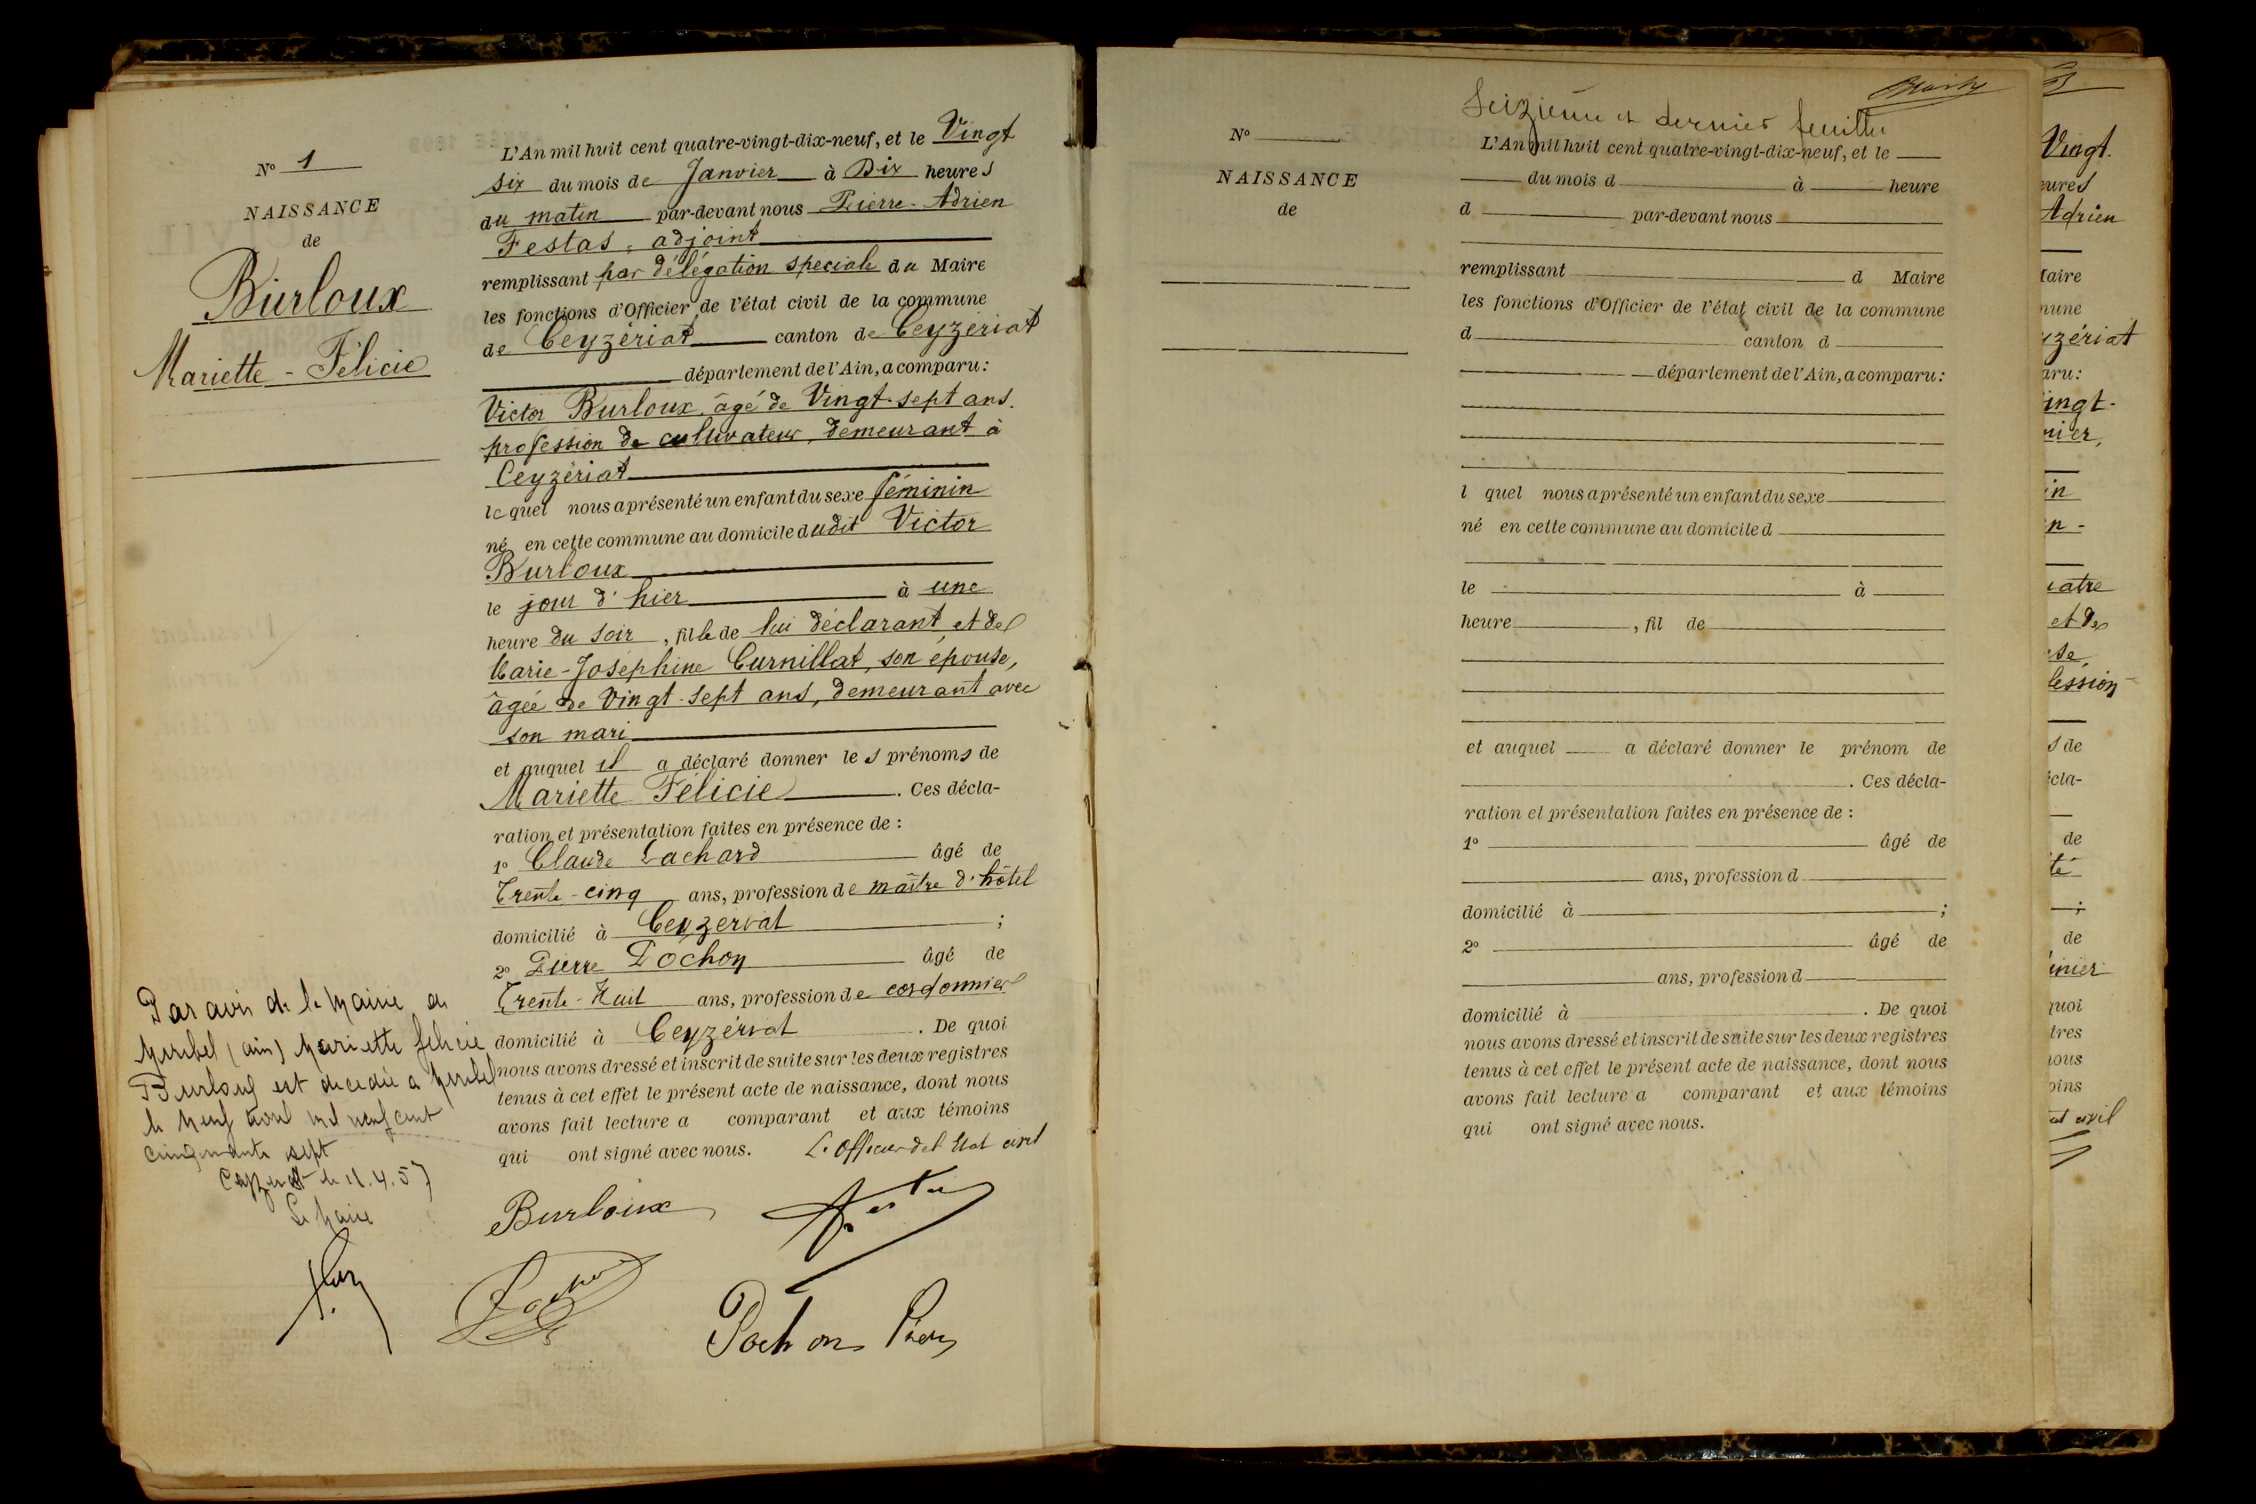 N° 1
NAISSANCE
de
Burloux
Mariette - Félicie
L'An mil huit cent quatre-vingt-dix-neuf, et le Vingt
six du mois de Janvier à Dix heures
du matin par-devant nous Pierre-Adrien
Festas, adjoint
remplissant par délégation speciale du Maire
les fonctions d'Officier de l'état civil de la commune
de Ceyzériat canton de Ceyzériat
département de l'Ain, a comparu :
Victor Burloux, âgé de Vingt-sept ans.
profession de cultivateur, demeurant à
Ceyzériat
lequel nous a présenté un enfant du sexe féminin
né en cette commune au domicile dudit Victor
Burloux
le jour d'hier à une
heure du soir, fille de lui déclarant et de
Marie-Joséphine Curnillat, son épouse,
âgée de Vingt-sept ans, demeurant avec
son mari
et auquel il a déclaré donner les prénoms de
Mariette Félicie. Ces décla-
ration et présentation faites en présence de :
1° Claude Lachard âgé de
Trente-cinq ans, profession de maître d'hôtel
domicilié à Ceyzeriat ;
2° Pierre Pochon âgé de
Trente-Huit ans, profession de cordonnier
domicilié à Ceyzériat. De quoi
nous avons dressé et inscrit de suite sur les deux registres
tenus à cet effet le présent acte de naissance, dont nous
avons fait lecture a comparant et aux témoins
qui ont signé avec nous. L'Officier de l'Etat civil
Burloux
Pochon Pierre
Par avis de la Mairie de
Miribel (ain) Mariette felicie
Burloux est decedée a Miribel
le neuf avril mil neuf cent
cinquante sept
Ceyzeriat le 11.4.57
Le Maire
Seizieme et dernier feuillet
N°
NAISSANCE
de
L'An mil huit cent quatre-vingt-dix-neuf, et le
du mois d à heure
d par-devant nous
remplissant d Maire
les fonctions d'Officier de l'état civil de la commune
d canton d
département de l'Ain, a comparu :
l quel nous a présenté un enfant du sexe
né en cette commune au domicile d
le à
heure , fil de
et auquel a déclaré donner le prénom de
. Ces décla-
ration et présentation faites en présence de :
1° âgé de
ans, profession d
domicilié à ;
2° âgé de
ans, profession d
domicilié à . De quoi
nous avons dressé et inscrit de suite sur les deux registres
tenus à cet effet le présent acte de naissance, dont nous
avons fait lecture a comparant et aux témoins
qui ont signé avec nous.
Vingt.
eures
Adrien
Maire
mune
yzériat
aru :
ingt-
nier,
in
n-
uatre
et de
se,
fession
s de
écla-
de
té
;
de
inier
quoi
tres
nous
oins
tat civil